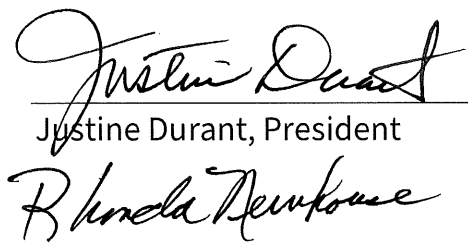 Justine Durant
Justine Durant, President
Rhonda Newhouse